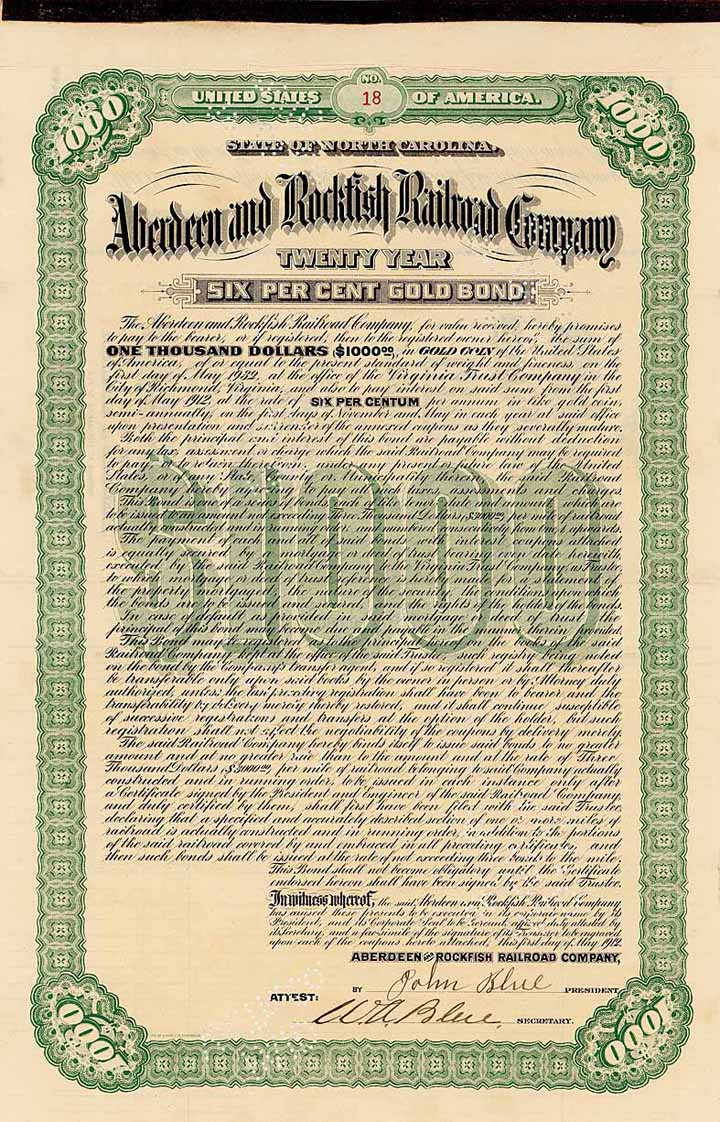 1000
UNITED STATES
NO.
18
OF AMERICA.
1000
STATE OF NORTH CAROLINA.
Aberdeen and Rockfish Railroad Company
TWENTY YEAR
SIX PER CENT GOLD BOND
The Aberdeen and Rockfish Railroad Company, for value received, hereby promises
to pay to the bearer, or if registered, then to the registered owner hereof, the sum of
ONE THOUSAND DOLLARS ($1000.00), in GOLD COIN of the United States
of America, of or equal to the present standard of weight and fineness, on the
first day of May 1932, at the office of the Virginia Trust Company in the
City of Richmond, Virginia, and also to pay interest on said sum from the first
day of May 1912, at the rate of SIX PER CENTUM per annum in like gold coin
semi-annually, on the first days of November and May in each year at said office
upon presentation and surrender of the annexed coupons as they severally mature.
Both the principal and interest of this bond are payable without deduction
for any tax assessment or charge which the said Railroad Company may be required
to pay, or retain therefrom, under any present or future law of the United
States, or of any State, County or Municipality therein, the said Railroad
Company hereby agreeing to pay all such taxes assessments and charges.
This Bond is one of a series of bonds each of like tenor date and amount, which are
to be issued at not exceeding Three Thousand Dollars, $3000.00, per mile of railroad
actually constructed and in running order, and numbered consecutively from one upward.
The payment of each and all of said bonds with interest coupons attached
is equally secured by a mortgage or deed of trust bearing even date herewith
executed by the said Railroad Company to the Virginia Trust Company, as Trustee,
to which mortgage or deed of trust reference is hereby made for a statement of
the property mortgaged, the nature of the security, the conditions upon which
the bonds are to be issued and secured, and the rights of the holders of the bonds.
In case of default as provided in said mortgage or deed of trust the
principal of this bond may become due and payable in the manner therein provided.
This Bond may be registered as to the principal thereof on the books of the said
Railroad Company kept at the office of the said Trustee, such registry being noted
on the bond by the Company's transfer agent, and if so registered it shall thereafter
be transferable only upon said books by the owner in person or by Attorney duly
authorized, unless the last preceding registration shall have been to bearer and the
transferability by delivery merely thereby restored, and it shall continue susceptible
of successive registrations and transfers at the option of the holder, but such
registration shall not affect the negotiability of the coupons by delivery merely.
The said Railroad Company hereby binds itself to issue said bonds to no greater
amount and at no greater rate than to the amount and at the rate of Three
Thousand Dollars, $3000.00, per mile of railroad belonging to said Company actually
constructed and in running order, to be issued in each instance only after
a Certificate signed by the President and Engineer of the said Railroad Company
and duly certified by them, shall first have been filed with the said Trustee
declaring that a specified and accurately described section of one or more miles of
railroad is actually constructed and in running order, in addition to the portions
of the said railroad covered by and embraced in all preceding certificates, and
then such bonds shall be issued at the rate of not exceeding three bonds to the mile.
This Bond shall not become obligatory until the Certificate
endorsed hereon shall have been signed by the said Trustee.
In witness whereof, the said Aberdeen and Rockfish Railroad Company
has caused these presents to be executed in its corporate name by its
President, and its Corporate Seal to be hereunto affixed duly attested by
its Secretary, and a facsimile of the signature of its Treasurer to be engraved
upon each of the coupons hereto attached, this first day of May 1912.
ABERDEEN AND ROCKFISH RAILROAD COMPANY,
BY John Blue PRESIDENT
ATTEST:
W.A. Blue. SECRETARY.
$1000
1000
1000